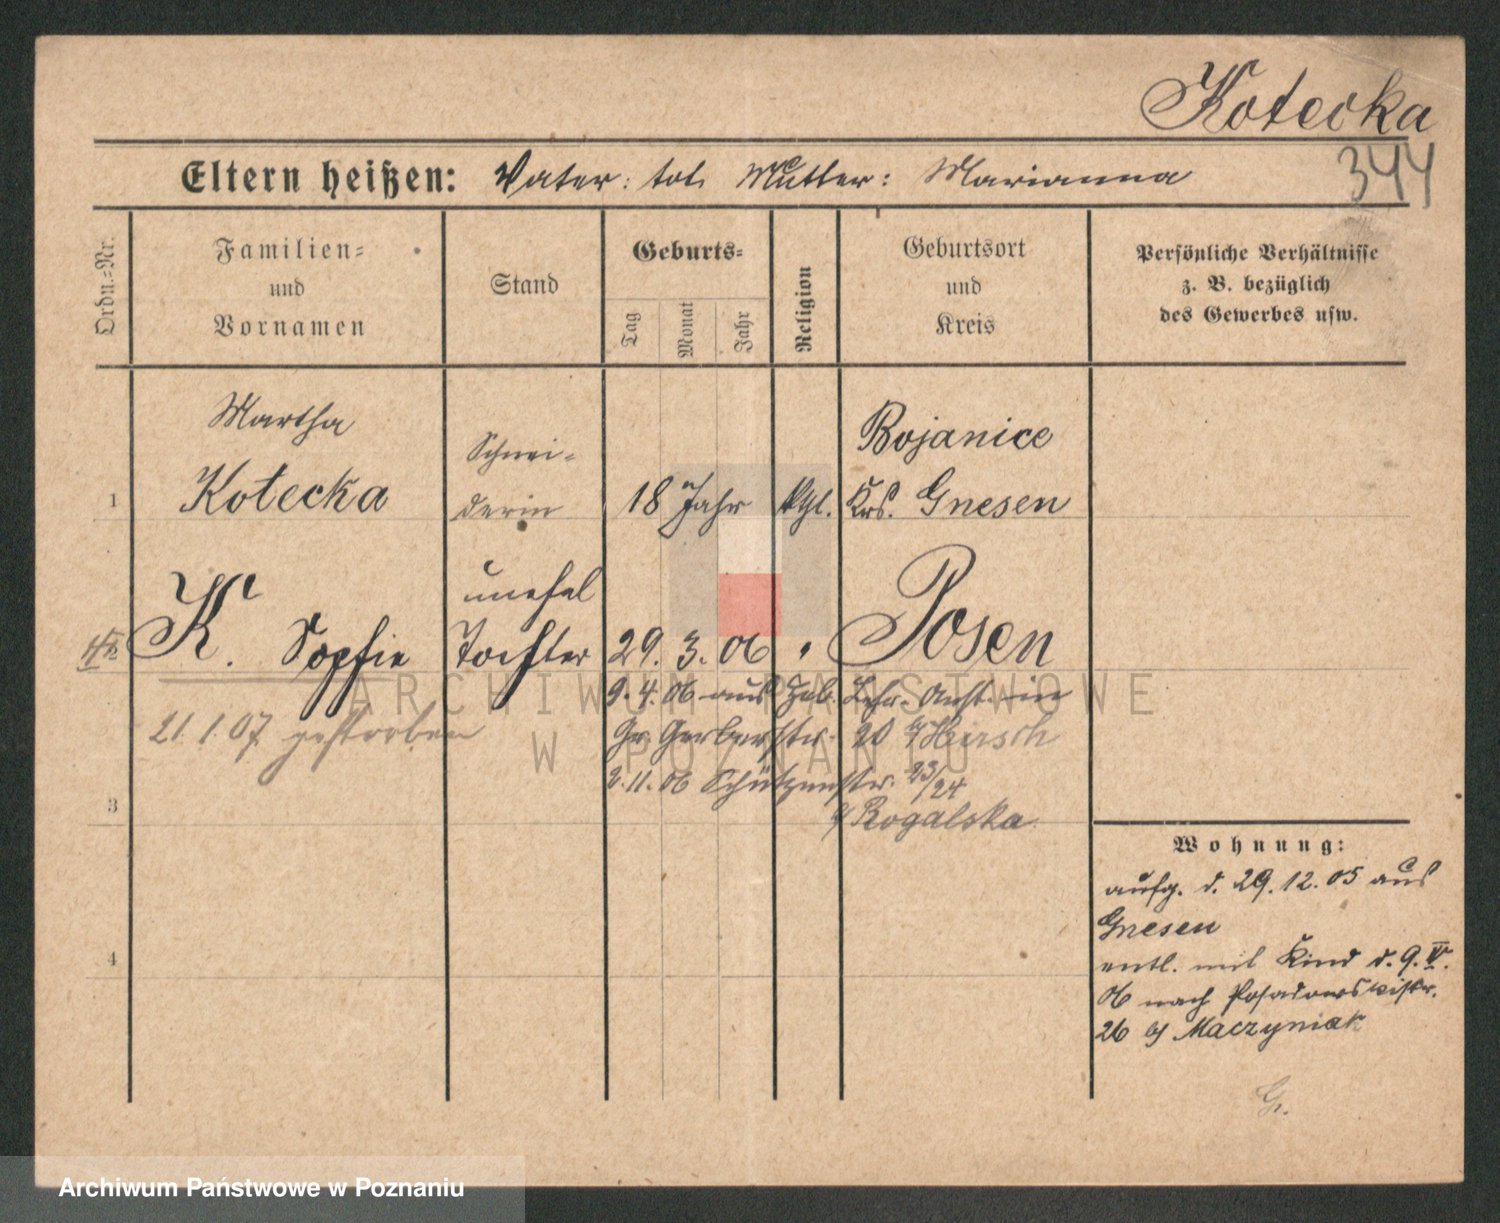 Kotecka
344
Eltern heißen: Vater: tot Mutter: Marianna
Ordn.=Nr.
Familien=
und
Vornamen
Stand
Geburts=
Tag
Monat
Jahr
Religion
Geburtsort
und
Kreis
Persönliche Verhältnisse
z. B. bezüglich
des Gewerbes usw.
1
Martha
Kotecka
Schnei=
derin
18 Jahr
ktl.
Bojanice
Krs. Gnesen
K. Sophie
unehel
Tochter
29. 3. 06
Posen
9.4.06 aus Heb. Lehr. Anst. in
Gr. Gerberstr. 20 Hirsch
21.1.07 gestorben
2.11.06 Schützenstr. 23/24
Rogalska
3
4
Wohnung:
aufg. d. 29.12.05 aus
Gnesen
entl. mit Kind d. 9. IV.
06 nach Posadowskistr.
26 b/ Maczyniak
G.
ARCHIWUM PAŃSTWOWE
W POZNANIU
Archiwum Państwowe w Poznaniu